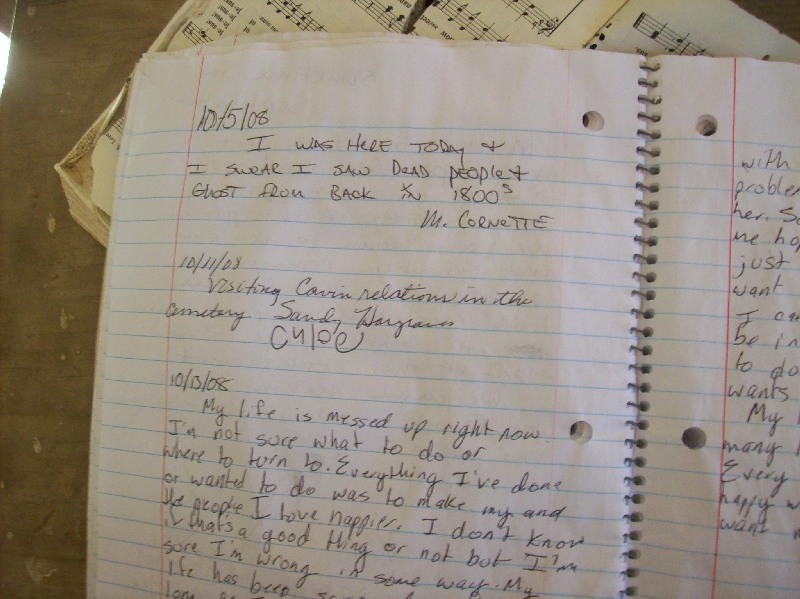 10/5/08
I WAS HERE TODAY &
I SWEAR I SAW DEAD PEOPLE &
GHOST FROM BACK IN 1800s
M. CORNETTE
10/11/08
Visiting Cavin relations in the
cemetary Sandy Hargraves
CHLOE
10/13/08
My life is messed up right now.
I'm not sure what to do or
where to turn to. Everything I've done
or wanted to do was to make my and
the people I love happier. I don't know
if that's a good thing or not but I'm
sure I'm wrong in some way. My
life has been
with
problem
her. So
me hop
just
want
I can
be in
to do
wants
My
many
Every
happy w
want